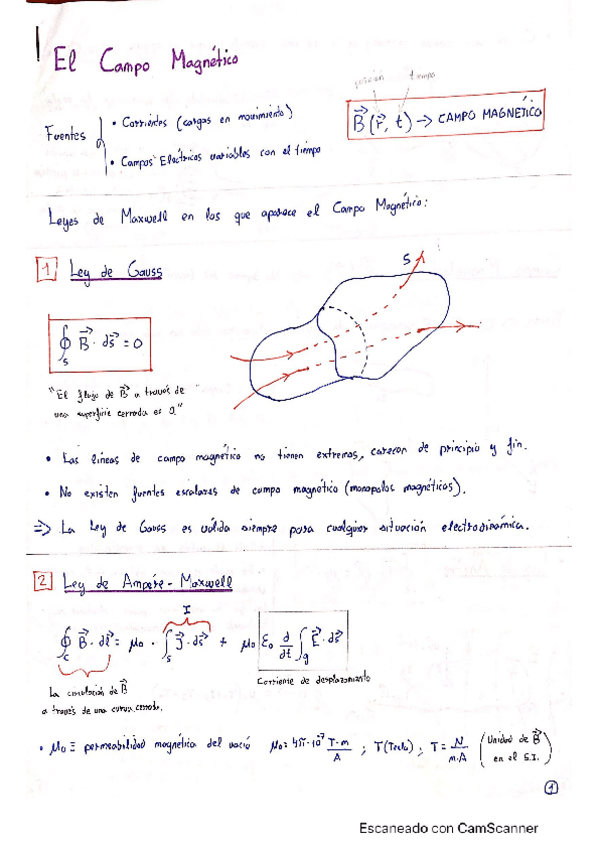 El Campo Magnético
posición tiempo
Fuentes
• Corrientes (cargas en movimiento)
• Campos Eléctricos variables con el tiempo
B⃗(r⃗, t) → CAMPO MAGNÉTICO
Leyes de Maxwell en las que aparece el Campo Magnético:
1 Ley de Gauss
S
∮_S B⃗ · ds⃗ = 0
"El flujo de B⃗ a través de
una superficie cerrada es 0."
• Las líneas de campo magnético no tienen extremos, carecen de principio y fin.
• No existen fuentes escalares de campo magnético (monopolos magnéticos).
⇒ La Ley de Gauss es válida siempre para cualquier situación electrodinámica.
2 Ley de Ampére - Maxwell
I
∮_C B⃗ · dl⃗ = μ₀ · ∫_S J⃗ · ds⃗ + μ₀ ε₀ d/dt ∫_S E⃗ · ds⃗
Corriente de desplazamiento
La circulación de B⃗
a través de una curva cerrada.
• μ₀ ≡ permeabilidad magnética del vacío μ₀ = 4π·10⁻⁷ T·m/A ; T(Tesla) ; T = N/m·A (Unidad de B⃗ en el S.I.)
1
Escaneado con CamScanner